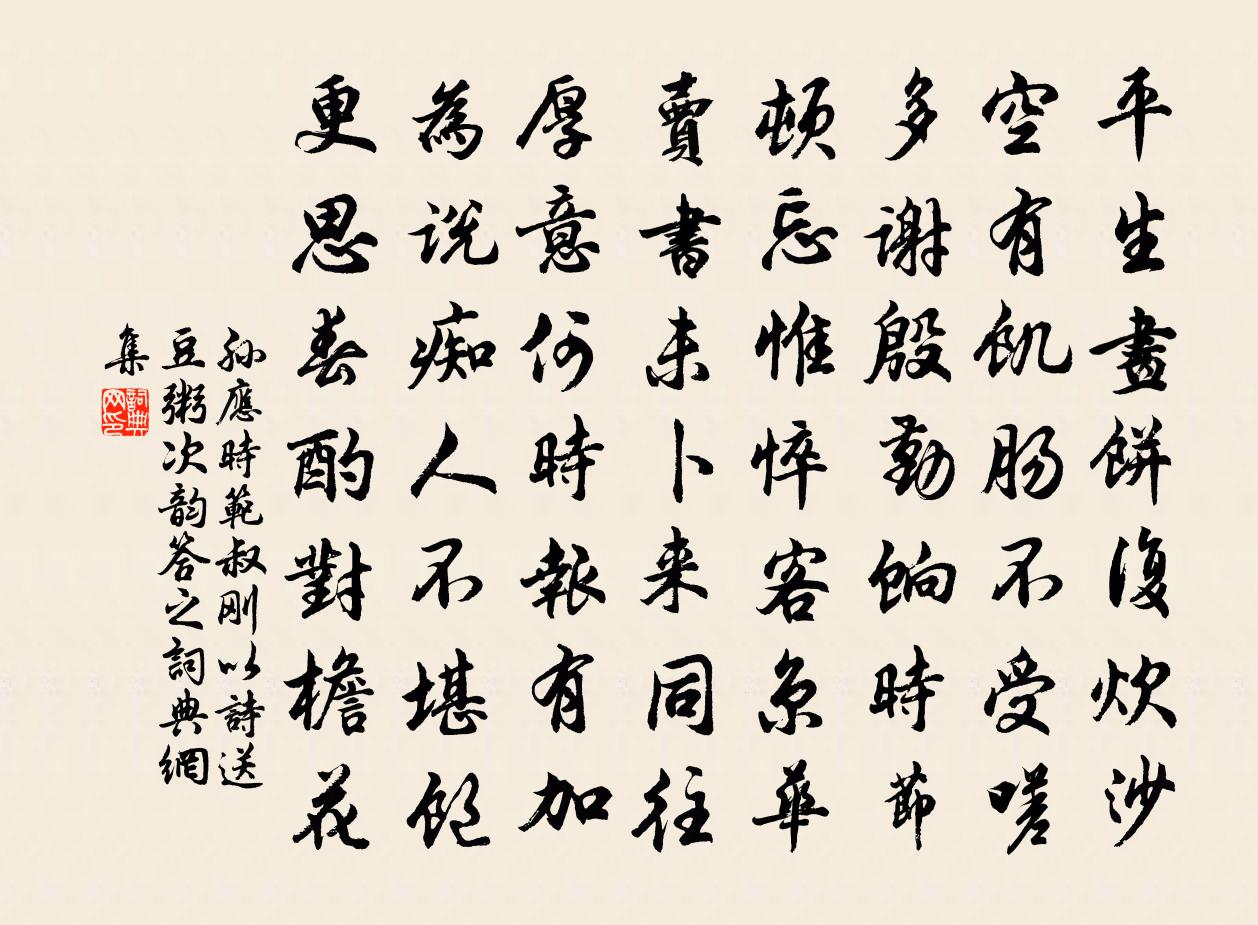 平生畫餅復炊沙
空有飢腸不受嗟
多謝殷勤餉時節
頓忘惟悴客京華
賣書未卜来同往
厚意何時報有加
為说痴人不堪飽
更思春酌對檐花
孙應時範叔刚以詩送
豆粥次韵答之詞典網
集
詞典
网印